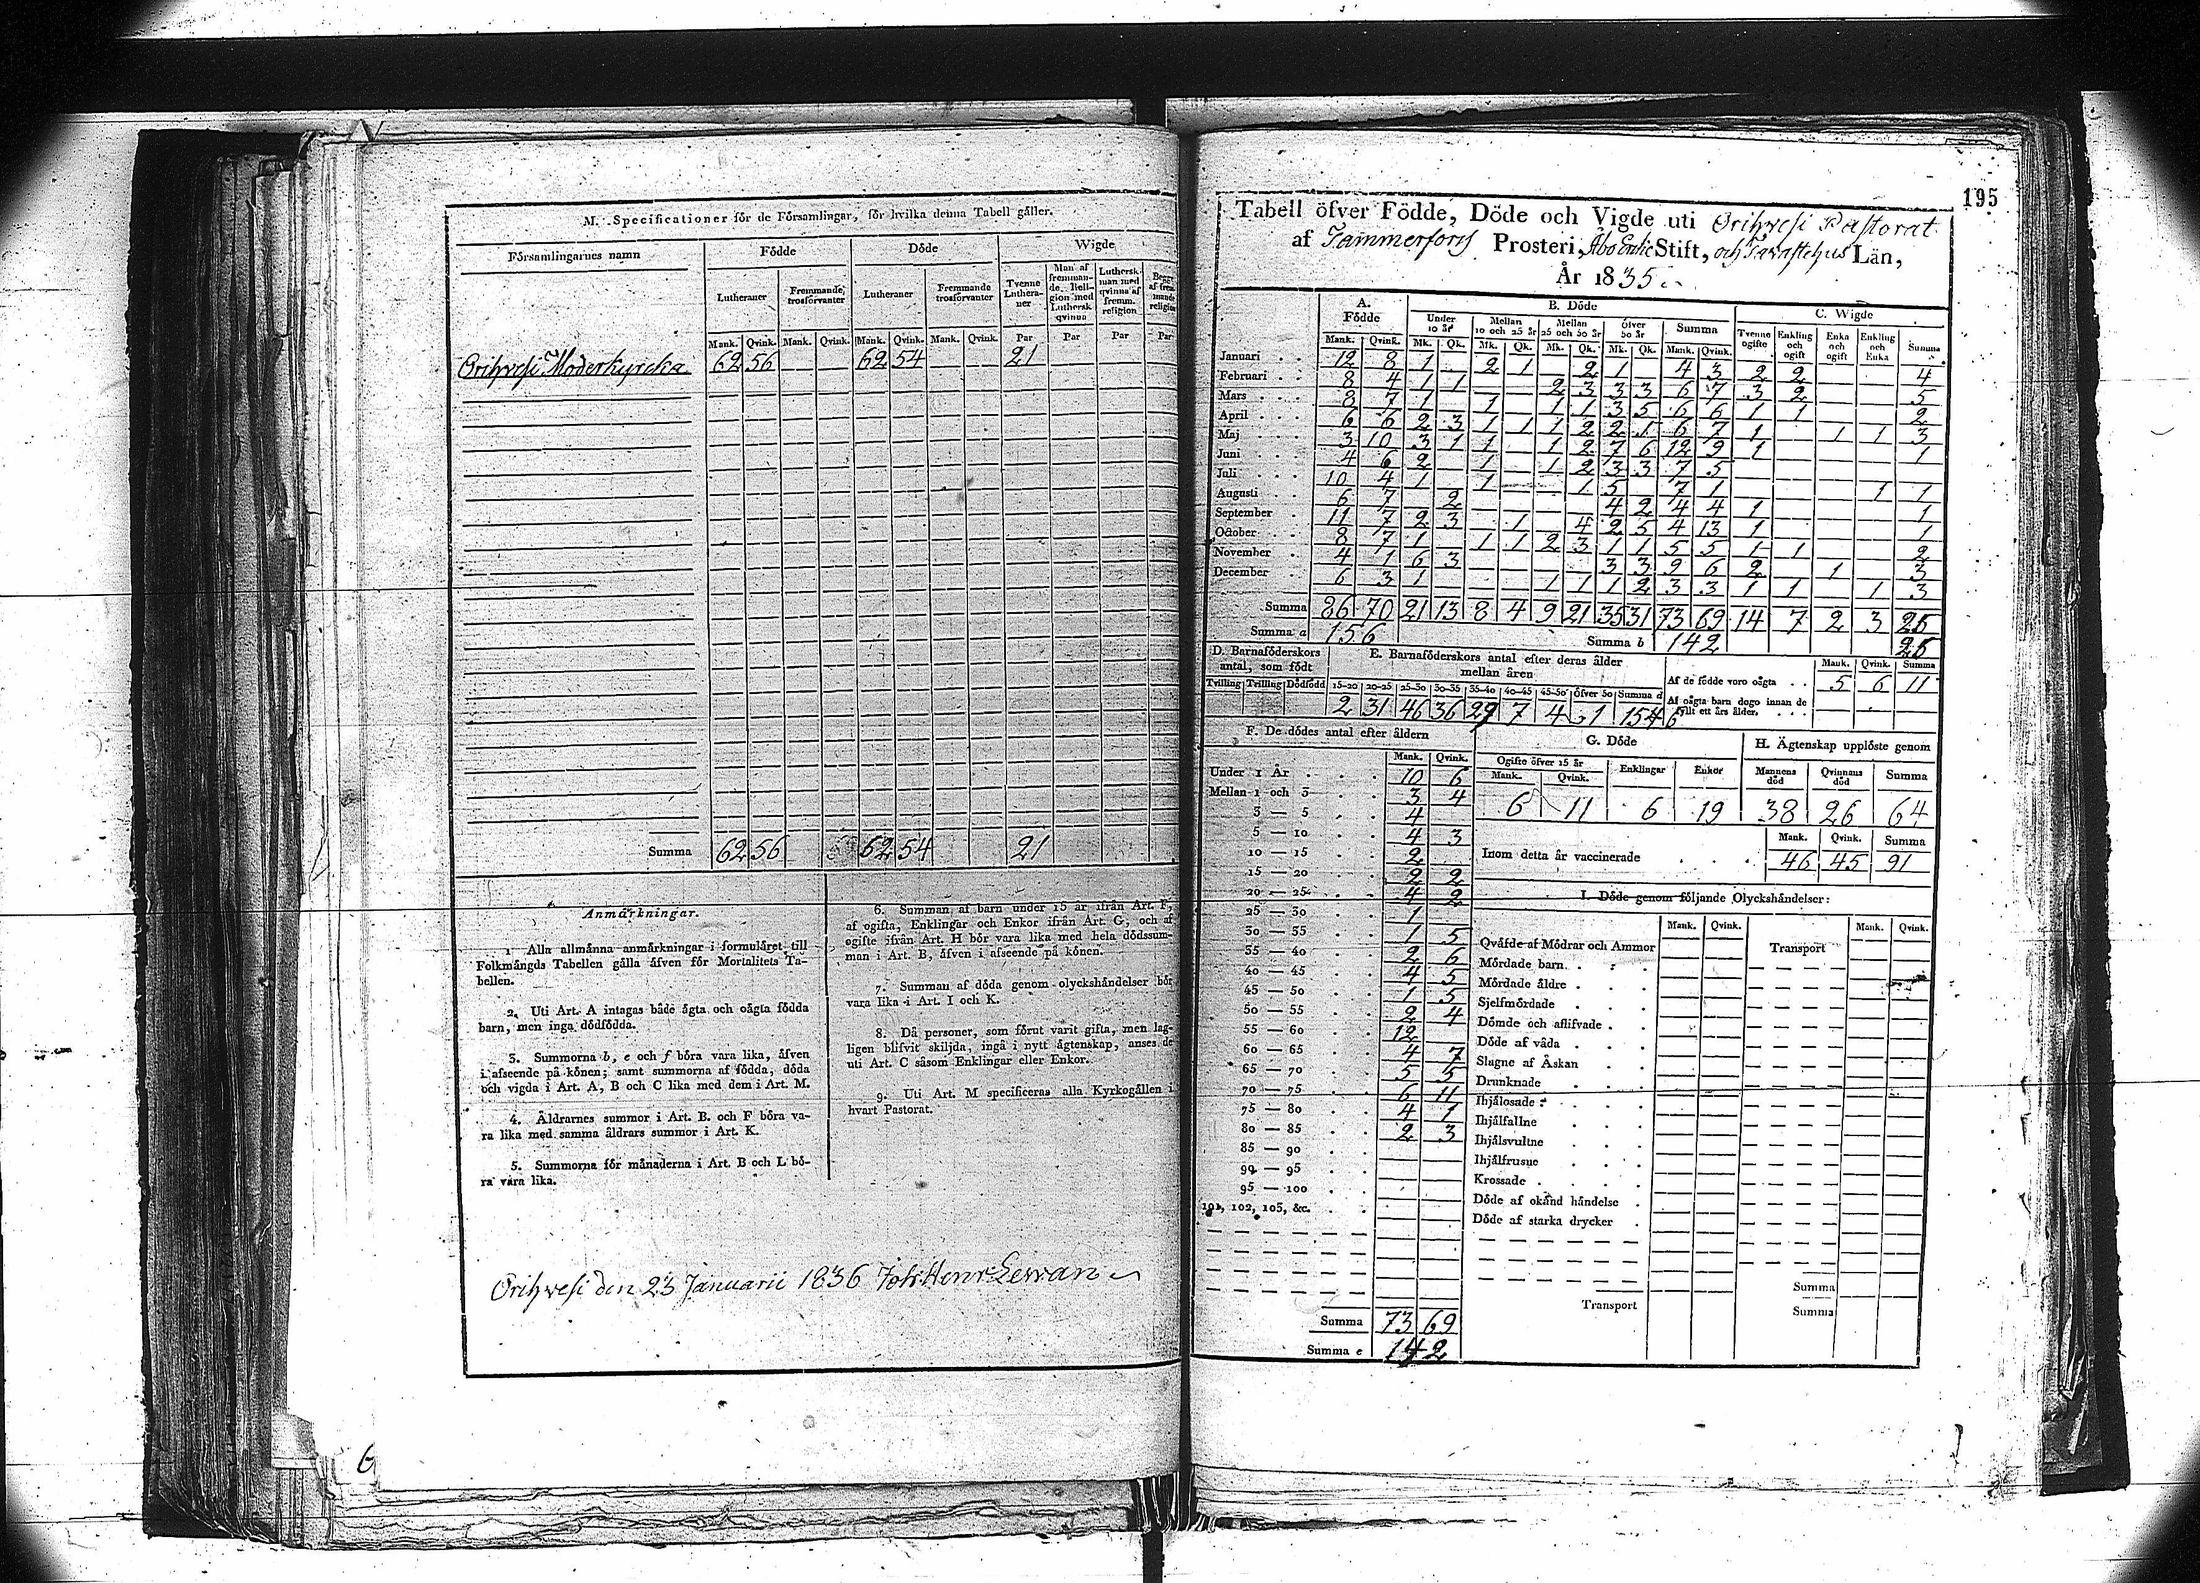 M. Specificationer för de Församlingar, för hvilka denna Tabell gäller.
Församlingarnes namn | Födde | Döde | Wigde
Lutheraner | Fremmande trosförvanter | Lutheraner | Fremmande trosförvanter | Tvenne Lutheraner | Man af fremmande Religion med Luthersk qvinna | Luthersk man med qvinna af fremm. religion
Mank. | Qvink. | Mank. | Qvink. | Mank. | Qvink. | Mank. | Qvink. | Par | Par | Par | Par
Orihvesi Moderkyrcka 62 56 62 54 21
Summa 62 56 62 54 21
Anmärkningar.
1. Alla allmänna anmärkningar i formuläret till
Folkmängds Tabellen gälla äfven för Mortalitets Ta-
bellen.
2. Uti Art. A intagas både ägta och oägta födda
barn, men inga dödfödda.
3. Summorna b, e och f böra vara lika, äfven
i afseende på könen; samt summorna af födda, döda
och vigda i Art. A, B och C lika med dem i Art. M.
4. Åldrarnes summor i Art. B. och F böra va-
ra lika med samma åldrars summor i Art. K.
5. Summorna för månaderna i Art. B och L bö-
ra vara lika.
6. Summan af barn under 15 år ifrån Art. F,
af ogifta, Enklingar och Enkor ifrån Art. G, och af
ogifte ifrån Art. H bör vara lika med hela dödssum-
man i Art. B, äfven i afseende på könen.
7. Summan af döda genom olyckshändelser bör
vara lika i Art. I och K.
8. Då personer, som förut varit gifta, men lag-
ligen blifvit skiljda, ingå i nytt ägtenskap, anses de
uti Art. C såsom Enklingar eller Enkor.
9. Uti Art. M specificeras alla Kyrkogällen i
hvart Pastorat.
Orihvesi den 23 Januarii 1836 Joh: Henr: Lewan
6
195
Tabell öfver Födde, Döde och Vigde uti Orihvesi Pastorat
af Tammerfors Prosteri, Åbo Erke Stift, och Tavastehus Län,
År 1835.
A. Födde | B. Döde | C. Wigde
Under 10 år | Mellan 10 och 25 år | Mellan 25 och 50 år | Öfver 50 år | Summa | Tvenne ogifte | Enkling och ogift | Enka och ogift | Enkling och Enka | Summa
Mank. | Qvink. | Mk. | Qk. | Mk. | Qk. | Mk. | Qk. | Mk. | Qk. | Mank. | Qvink.
Januari 12 8 1 2 1 2 1 4 3 2 2 4
Februari 8 4 1 1 2 3 3 3 6 7 3 2 5
Mars 8 7 1 1 1 1 3 5 6 6 1 1 2
April 6 6 2 3 1 1 1 2 2 1 6 7 1 1 1 3
Maj 3 10 3 1 1 1 2 7 6 12 9 1 1
Juni 4 6 2 1 1 2 3 3 7 5
Juli 10 4 1 1 1 5 7 1 1 1
Augusti 6 7 2 4 2 4 4 1 1
September 11 7 2 3 1 4 2 5 4 13 1 1
October 8 7 1 1 1 2 3 1 1 5 5 1 1 2
November 4 1 6 3 3 3 9 6 2 1 3
December 6 3 1 1 1 1 2 3 3 1 1 1 3
Summa 86 70 21 13 8 4 9 21 35 31 73 69 14 7 2 3
Summa a 156 Summa b 142
D. Barnaföderskors antal, som födt
Tvilling | Trilling | Dödfödd
E. Barnaföderskors antal efter deras ålder mellan åren
15-20 | 20-25 | 25-30 | 30-35 | 35-40 | 40-45 | 45-50 | öfver 50 | Summa d
2 31 46 36 29 7 4 1
Mank. | Qvink. | Summa
Af de födde voro oägta 5 6 11
Af oägta barn dogo innan de fyllt ett års ålder
F. De dödes antal efter åldern
Mank. | Qvink.
Under 1 År 10 6
Mellan 1 och 3 3 4
3 — 5 4
5 — 10 4 3
10 — 15 2
15 — 20 2 2
20 — 25 4 2
25 — 30 1
30 — 35 1 5
35 — 40 2 6
40 — 45 4 5
45 — 50 1 5
50 — 55 2 4
55 — 60 12
60 — 65 4 7
65 — 70 5 5
70 — 75 6 11
75 — 80 4 1
80 — 85 2 3
85 — 90
90 — 95
95 — 100
101, 102, 103, &c.
Summa 73 69
Summa e 142
G. Döde
Ogifte öfver 15 år | Enklingar | Enkor
Mank. | Qvink.
6 11 6 19
H. Ägtenskap upplöste genom
Mannens död | Qvinnans död | Summa
38 26 64
Mank. | Qvink. | Summa
Inom detta år vaccinerade 46 45 91
I. Döde genom följande Olyckshändelser:
Mank. | Qvink. | Mank. | Qvink.
Qväfde af Mödrar och Ammor
Mördade barn
Mördade äldre
Sjelfmördade
Dömde och aflifvade
Döde af våda
Slagne af Åskan
Drunknade
Ihjälosade
Ihjälfallne
Ihjälsvultne
Ihjälfrusne
Krossade
Döde af okänd händelse
Döde af starka drycker
Transport
Transport
Summa
Summa